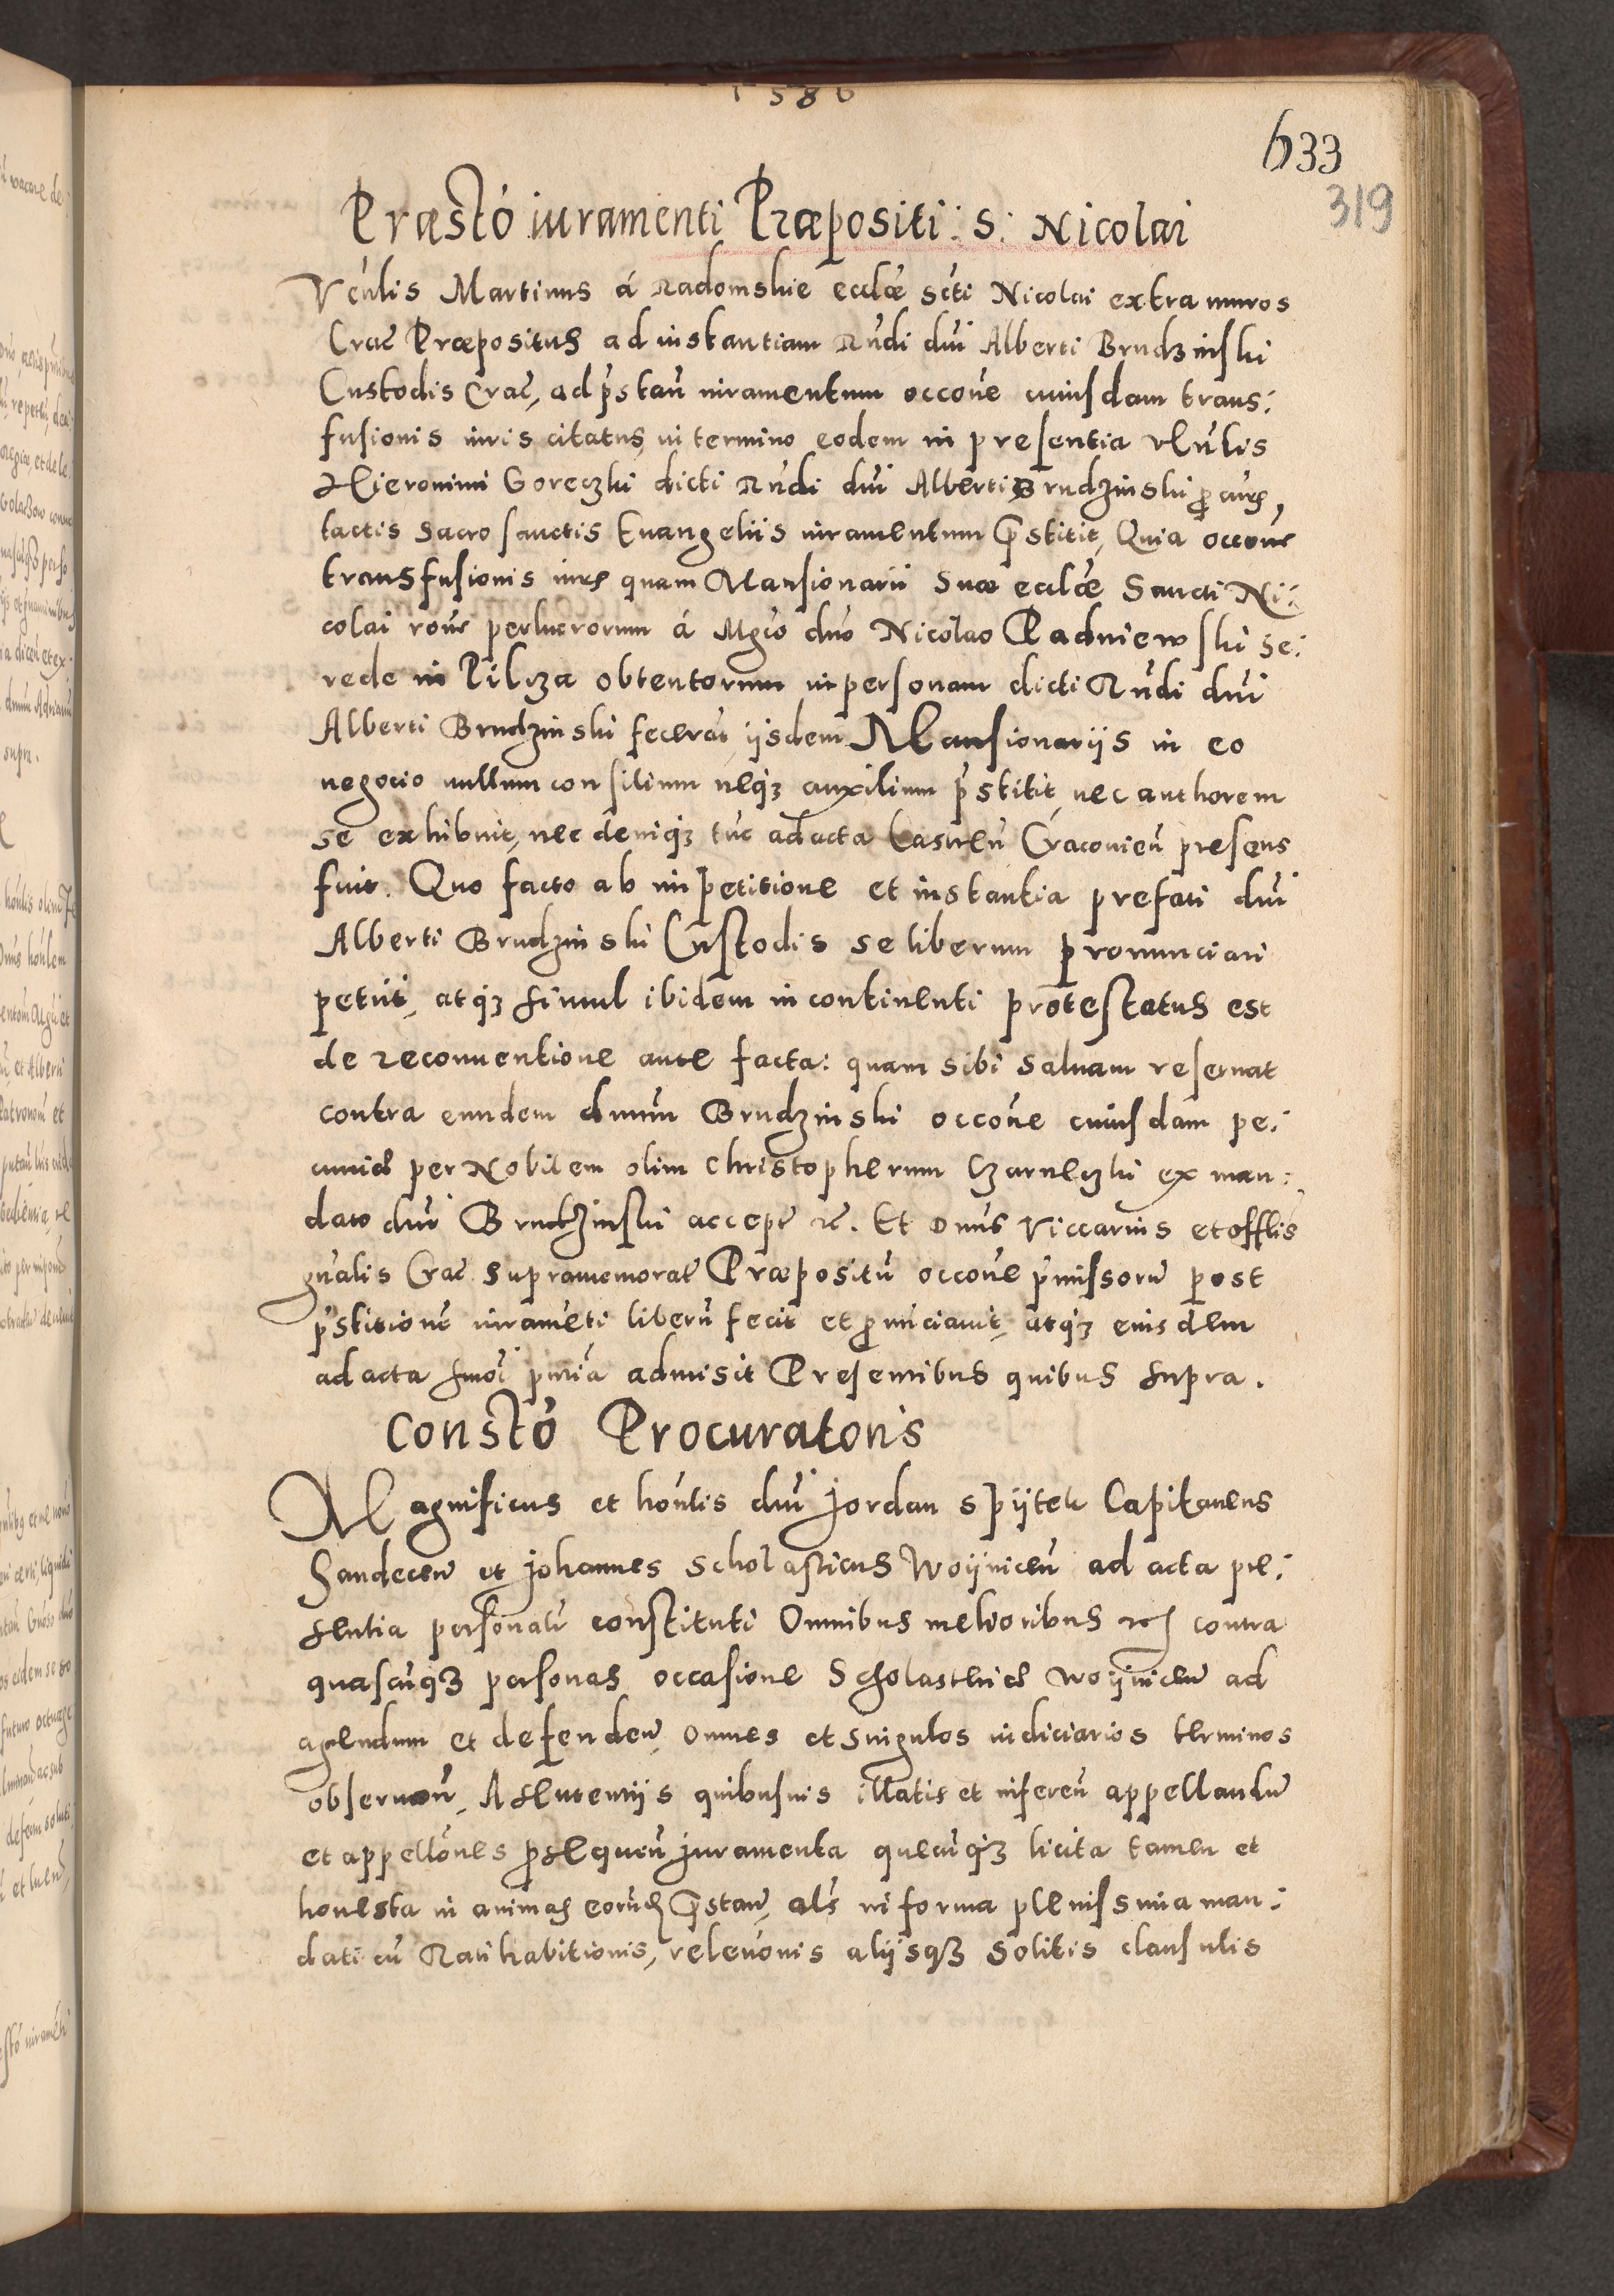 1586
633
319
Præstō iuramenti Præpositi: S: Nicolai
Vēnlis Martinus á Radomskie ecclēe scti Nicolai extra muros
Crac̄ Præpositus ad instantiam Rndi dni Alberti Brudzinski
Custodis Crac̄, ad p̄stan̄ iuramentum occōne cuiusdam trans:
fusionis iuris citatus, in termino eodem in presentia vēn̄lis
Hieronimi Goreczki dicti Rndi dni Alberti Brudzinski procurs,
tactis Sacrosanctis Euangeliis iuramentum p̄stitit, Quia occōne
transfusionis iuris quam Mansionarii Suæ ecclēe Sancti Ni:
colai rōne perlucrorum á Mgco dno Nicolao Padniewski se:
rede in Pilcza obtentorum in personam dicti Rndi dni
Alberti Brudzinski fecerāt, iisdem Mansionariis in eo
negocio nullum consilium neq3 auxilium p̄stitit, nec authorem
se exhibuit, nec deniq3 tūc ad acta Castren̄ Cracovien̄ presens
fuit. Quo facto ab impetitione et instantia prefati dni
Alberti Brudzinski Custodis se liberum pronunciari
petiit, atq3 simul ibidem in continenti protestatus est
de reconuentione ante facta: quam sibi saluam reseruat
contra eundem dnum Brudzinski occōne cuiusdam pe:
cuniæ per Nobilem olim Christopherum Czarneczki ex man:
dato dni Brudzinski accept̄ etc. Et Dnus Viccarius et offlis
gn̄alis Crac̄ supramemorat̄ Præpositū occōne p̄missorū post
p̄stitionē iuramēti liberū fecit et pronūciauit, atq3 eiusdem
ad acta hmōi pn̄tia admisit Presentibus quibus supra.
Constō Procuratoris
Magnificus et hon̄lis dni Jordan Spytek Capitaneus
Sandecen̄ et Johannes Scholasticus Woyniceū ad acta pre:
sentia personalr̄ constituti Omnibus melioribus etc contra
quascūq3 personas occasione Scholasteriæ Woynicen̄ ad
agendum et defenden̄, omnes et singulos iudiciarios terminos
obseruan̄, A sententiis quibusuis illatis et inferen̄ appellandū
et appellōnes prosequen̄ Juramenta quecūq3 licita tamen et
honesta in animas eorūdē p̄stan̄, als in forma plenissima man:
dati cū Ratihabitionis, relevōnis aliisq3 solitis clausulis